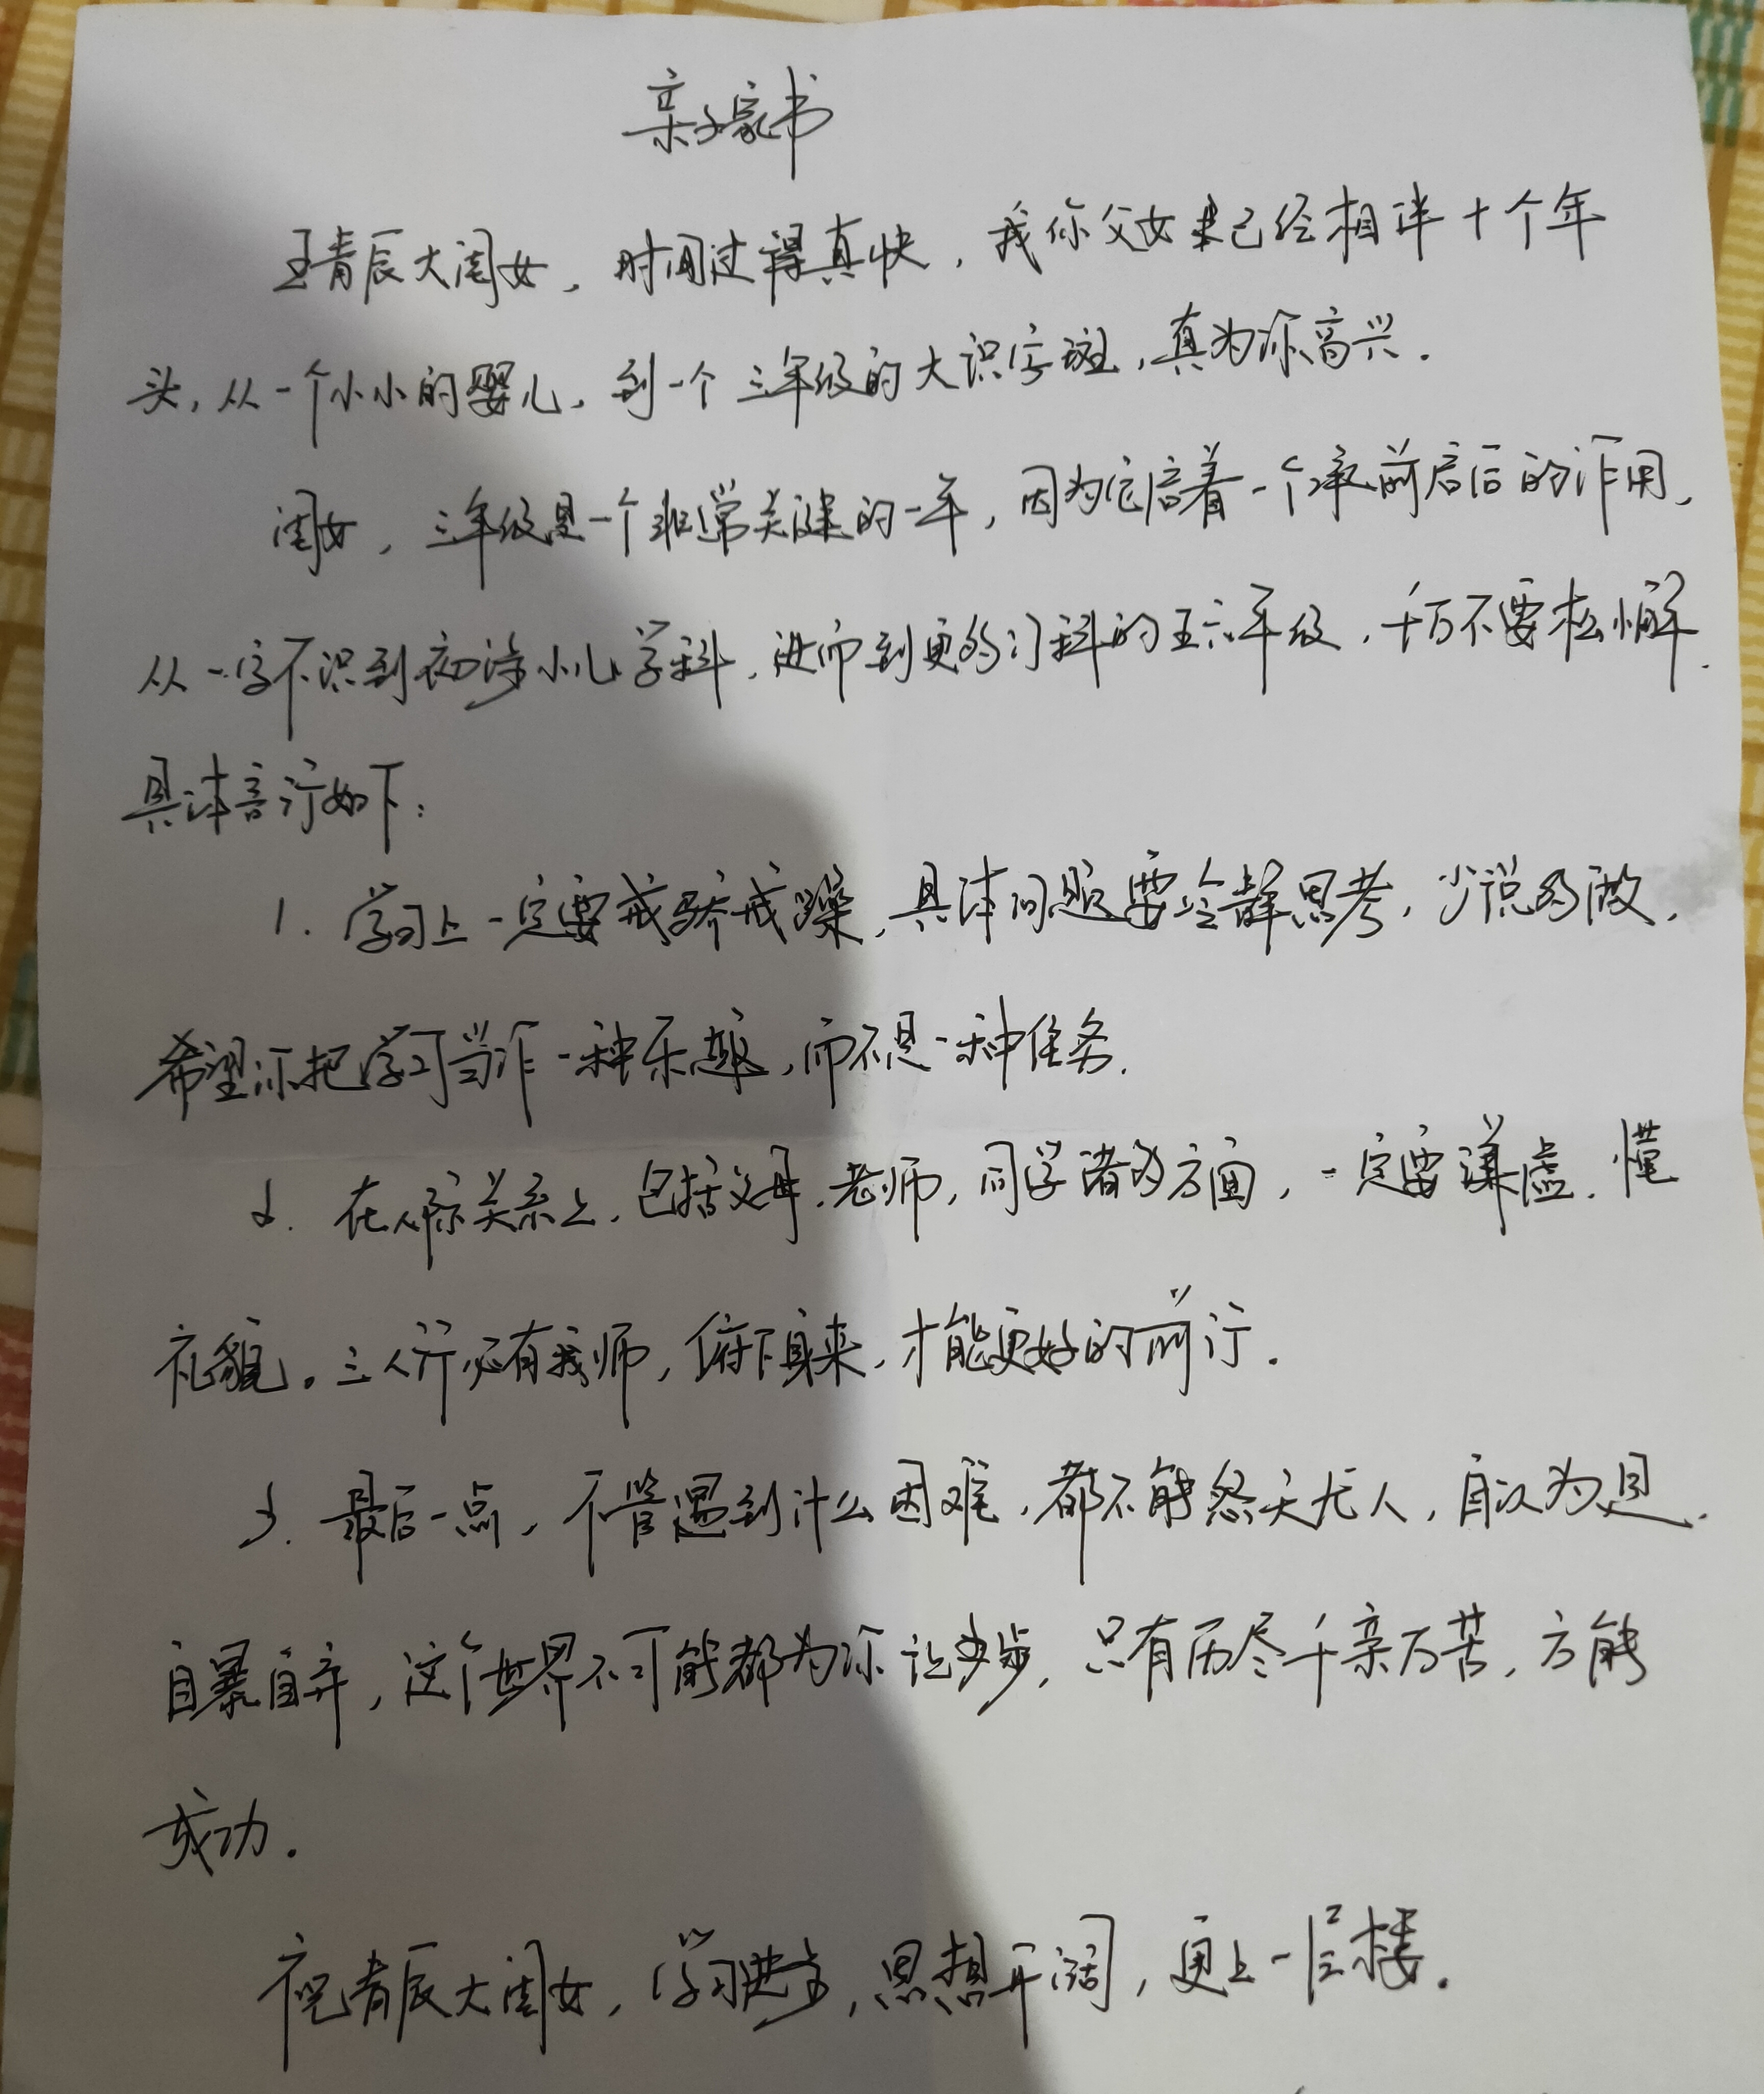 亲子家书
王青辰大闺女，时间过得真快，我你父女已经相伴十个年
头，从一个小小的婴儿，到一个三年级的大识字班，真为你高兴．
闺女，三年级是一个非常关键的一年，因为它启着一个承前启后的作用，
从一字不识到初涉小儿学科，进而到更多门科的五六年级，千万不要松懈．
具体言行如下：
1．学习上一定要戒骄戒躁，具体问题要冷静思考，少说多做，
希望你把学习当作一种乐趣，而不是一种任务．
2．在人际关系上，包括父母，老师，同学诸多方面，一定要谦虚，懂
礼貌。三人行必有我师，俯下身来，才能更好的前行．
3．最后一点，不管遇到什么困难，都不能怨天尤人，自以为是．
自暴自弃，这个世界不可能都为你让步，只有历尽千亲万苦，方能
成功．
祝青辰大闺女，学习进步，思想开阔，更上一层楼．